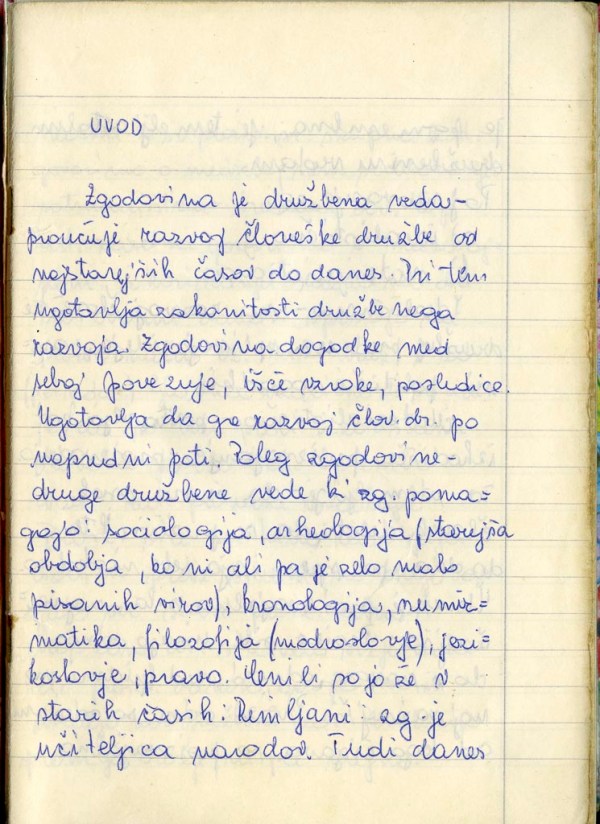 UVOD
Zgodovina je družbena veda -
proučuje razvoj človeške družbe od
najstarejših časov do danes. Pri tem
ugotavlja zakonitosti družbenega
razvoja. Zgodovina dogodke med
seboj povezuje, išče vzroke, posledice.
Ugotavlja da gre razvoj člov. dr. po
napredni poti. Poleg zgodovine -
druge družbene vede ki zg. poma=
gajo: sociologija, arheologija (starejša
obdobja, ko ni ali pa je zelo malo
pisanih virov), kronologija, numiz=
matika, filozofija (modroslovje), jezi=
koslovje, pravo. Cenili so jo že v
starih časih: Rimljani: zg. je
učiteljica narodov. Tudi danes